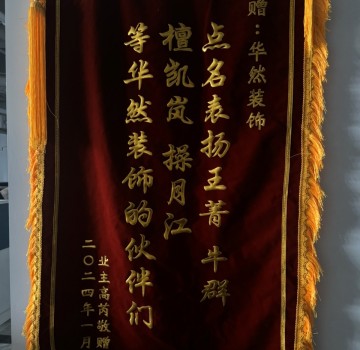 赠:华然装饰
点名表扬王菁 牛群
檀凯岚 操月江
等华然装饰的伙伴们
业主高芮敬赠
二〇二四年一月